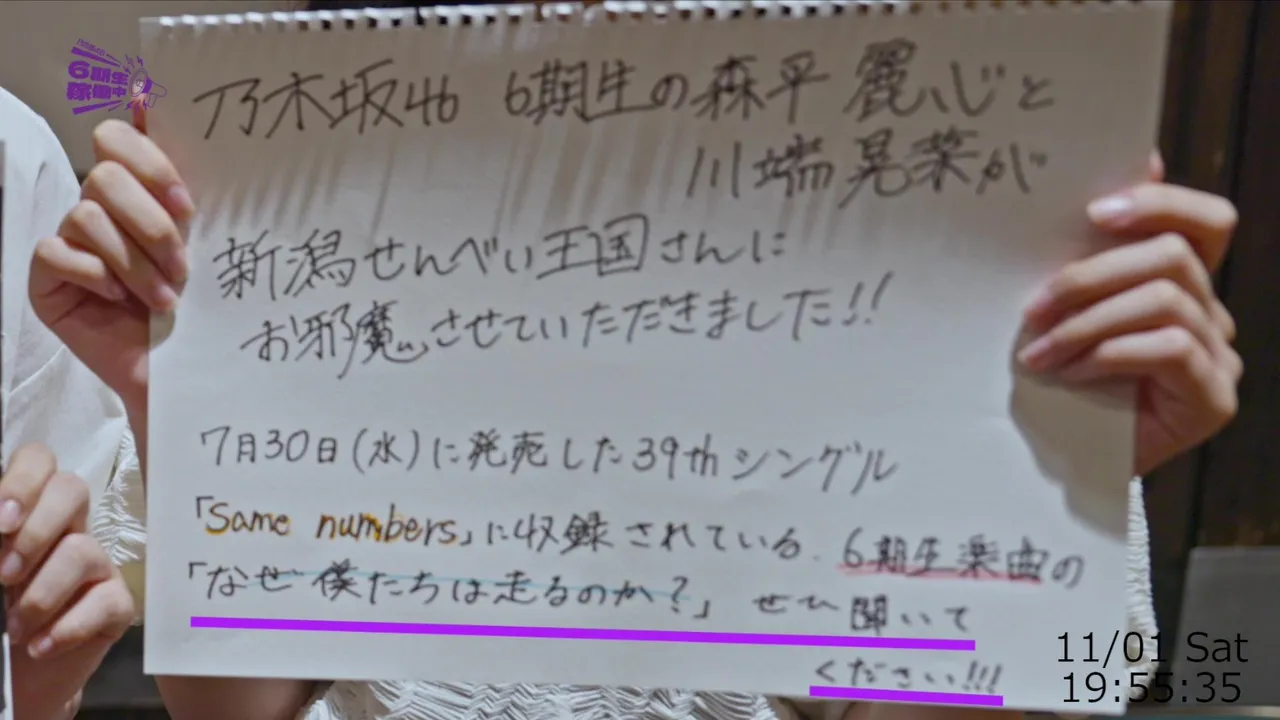 6期生
稼働中
乃木坂46 6期生の森平麗心と
川端晃菜が
新潟せんべい王国さんに
お邪魔させていただきました!!
7月30日(水)に発売した39thシングル
「Same numbers」に収録されている、6期生楽曲の
「なぜ僕たちは走るのか?」ぜひ聞いて
ください!!!
11/01 Sat
19:55:35